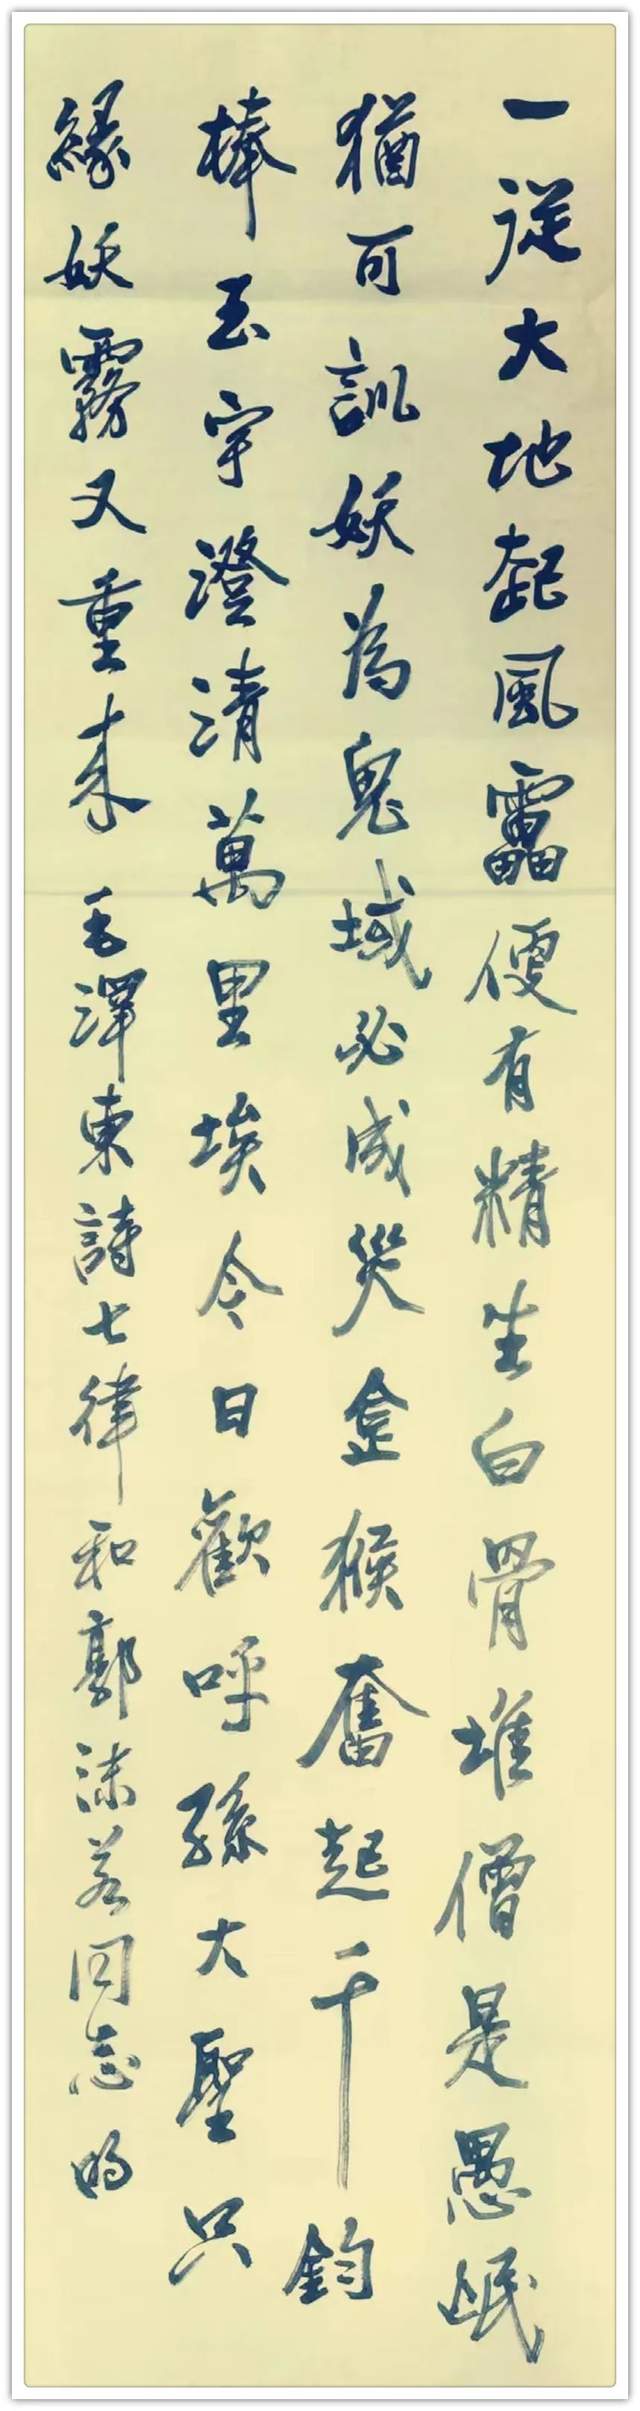 一從大地起風靁便有精生白骨堆僧是愚氓
猶可訓妖為鬼域必成災金猴奮起千鈞
棒玉宇澄清萬里埃今日歡呼孫大聖只
緣妖霧又重來 毛澤東詩七律和郭沫若同志